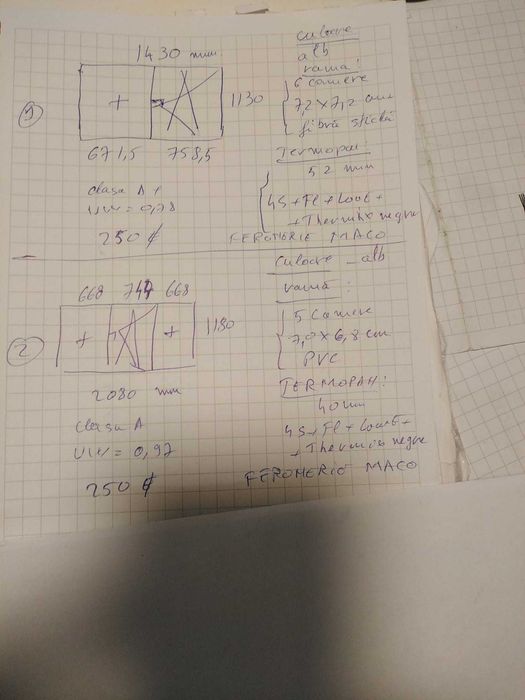 1430 mm
1
1130
671,5 758,5
clasa A+
UW = 0,78
250 €
culoare
alb
rama:
6 camere
7,2 x 7,2 cm
fibră sticlă
Termopan:
52 mm
4S + Fl + Lowe +
+ Thermix negru
FERONERIE MACO
2
668 744 668
1180
2080 mm
clasa A
UW = 0,97
250 €
culoare - alb
ramă:
5 camere
7,0 x 6,8 cm
PVC
TERMOPAN:
40 mm
4S + Fl + Lowe +
+ Thermix negru
FERONERIE MACO